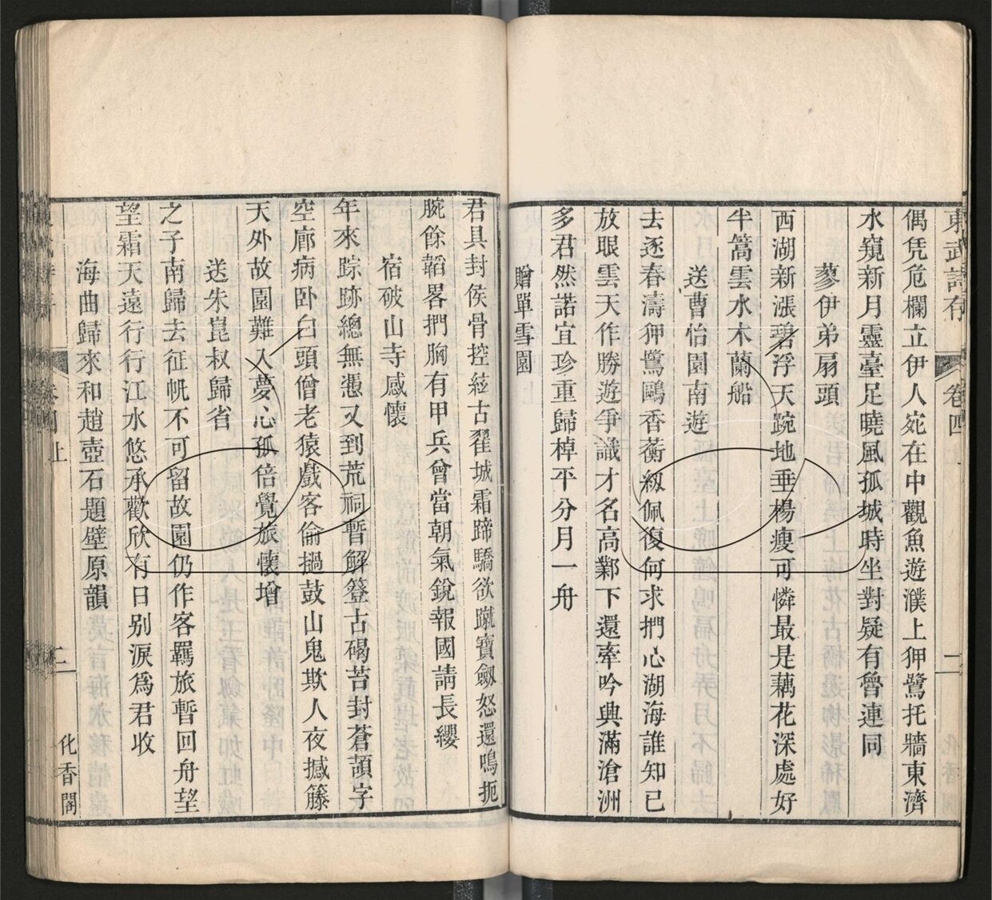 東武詩存
卷四上
偶凭危欄立伊人宛在中觀魚遊濮上狎鷺托牆東濟
水窺新月靈臺足曉風孤城時坐對疑有魯連同
蓼伊弟扇頭
西湖新漲碧浮天踠地垂楊瘦可憐最是藕花深處好
半篙雲水木蘭船
送曹怡園南遊
去逐春濤狎鷺鷗香蘅紉佩復何求捫心湖海誰知已
放眼雲天作勝遊爭識才名高鄴下還牽吟興滿滄洲
多君然諾宜珍重歸棹平分月一舟
贈單雪園
君具封侯骨控絃古翟城霜蹄驕欲蹴寶劔怒還鳴扼
腕餘韜畧捫胸有甲兵曾當朝氣銳報國請長纓
宿破山寺感懷
年來踪跡總無憑又到荒祠暫解簦古碣苔封蒼頡字
空廊病卧白頭僧老猿戲客偷撾鼓山鬼欺人夜撼籐
天外故園難入夢心孤倍覺旅懷增
送朱崑叔歸省
之子南歸去征帆不可留故園仍作客羈旅暫回舟望
望霜天遠行行江水悠承歡欣有日别淚爲君收
海曲歸來和趙壺石題壁原韻
卷四上
二
化香閣